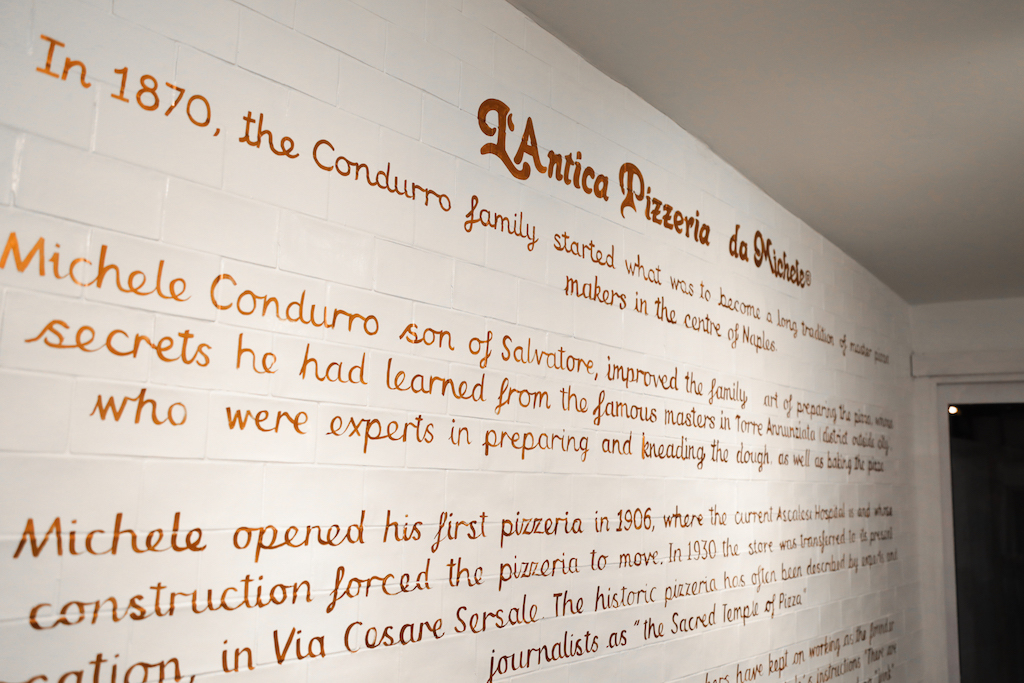 L'Antica Pizzeria da Michele®
In 1870, the Condurro family started what was to become a long tradition of master pizza
makers in the centre of Naples.
Michele Condurro son of Salvatore, improved the family art of preparing the pizza, whose
secrets he had learned from the famous masters in Torre Annunziata (district outside city
who were experts in preparing and kneading the dough, as well as baking the pizza.
Michele opened his first pizzeria in 1906, where the current Ascalesi Hospital is and whose
construction forced the pizzeria to move. In 1930 the store was transferred to its present
ocation, in Via Cesare Sersale. The historic pizzeria has often been described by experts and
journalists as "the Sacred Temple of Pizza"
have kept on working as the
instructions. "There are